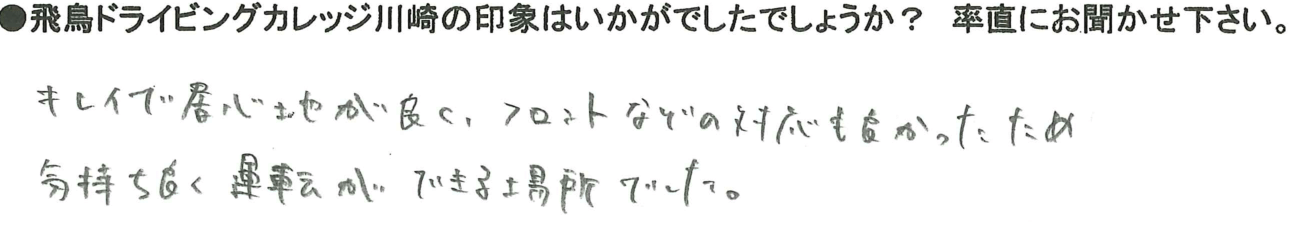 ●飛鳥ドライビングカレッジ川崎の印象はいかがでしたでしょうか？　率直にお聞かせ下さい。
キレイで居心地が良く、フロントなどの対応も良かったため
気持ち良く運転ができる場所でした。